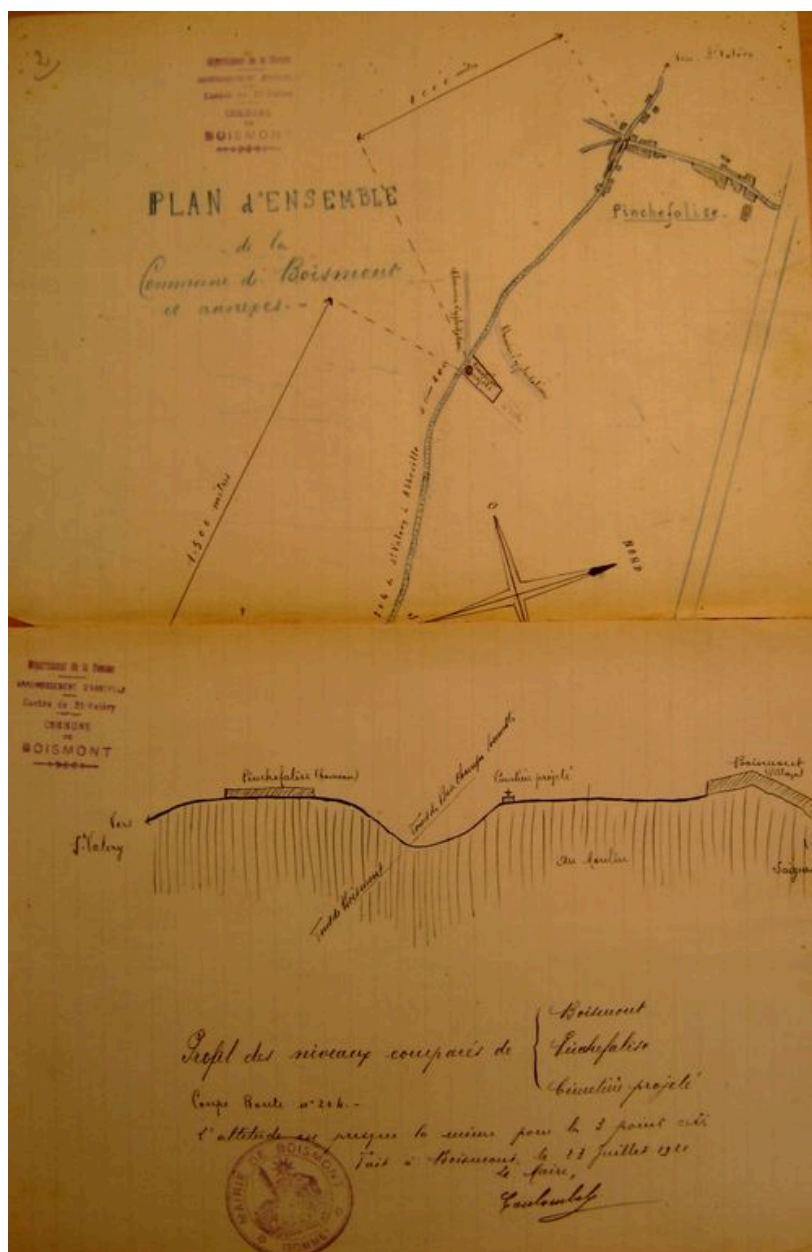 2)
Département de la Somme
ARRONDISSEMENT D'ABBEVILLE
Canton de St-Valery
COMMUNE
DE
BOISMONT
PLAN d'ENSEMBLE
de la
Commune de Boismont
et annexes.-
1000 mètres
Vers St Valéry
Pinchefalise.
Chemin d'exploitation
Chemin d'exploitation
1.500 mètres
204 de St Valery à Abbeville
O
NORD
S
Département de la Somme
ARRONDISSEMENT D'ABBEVILLE
Canton de St-Valéry
COMMUNE
DE
BOISMONT
Pinchefalise (hameau)
Vers
St Valery
Fond de
Fond de Boismont
Cimetière projeté
Boismont
(Village)
Au Moulin
Profil des niveaux comparés de
Boismont
Pinchefalise
Cimetière projeté
Coupe Route n° 204.-
L'altitude est presque la même pour les 3 points cités
Fait à Boismont, le 23 Juillet 1920
Le Maire,
MAIRIE DE BOISMONT
(SOMME)